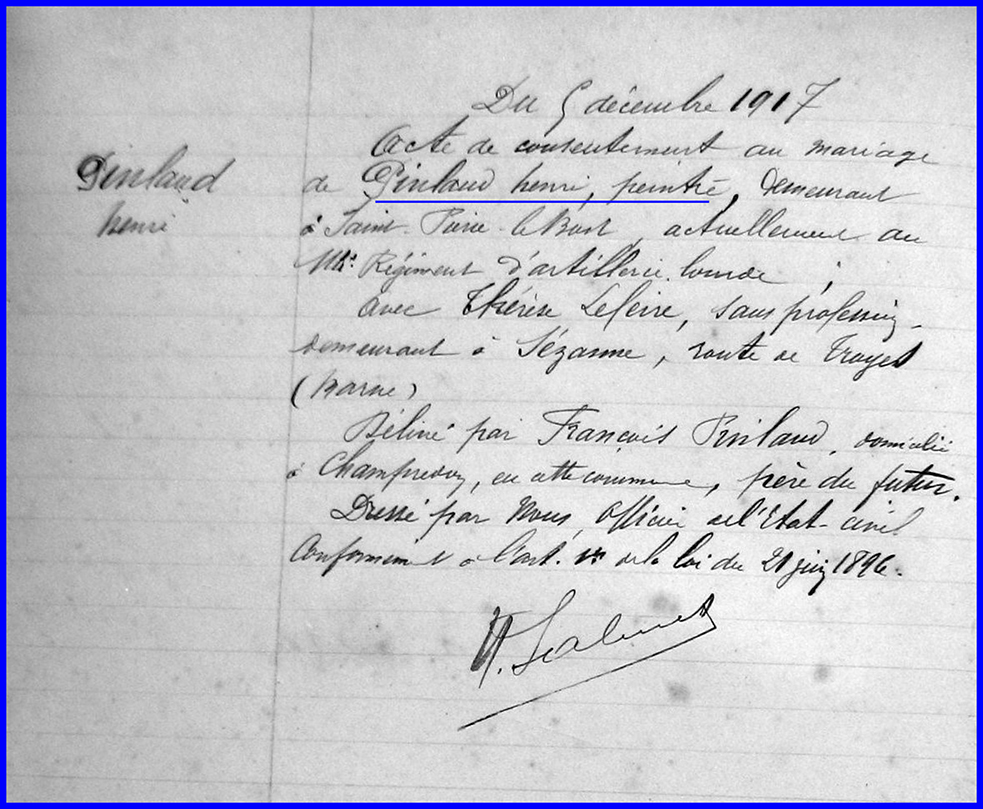 Du 5 décembre 1917
Pinlaud
henri
Acte de consentement au mariage
de Pinlaud henri, peintre, demeurant
à Saint-Pierre-le-Bost, actuellement au
Régiment d'artillerie lourde,
avec Thérèse Lefèvre, sans profession,
demeurant à Sézanne, route de Troyes
(Marne)
Délivré par François Pinlaud, domicilié
à Champredon, en cette commune, père du futur.
Dressé par Nous, Officier de l'Etat-civil
Conformément à l'art. 1er de la loi du 21 juin 1896.